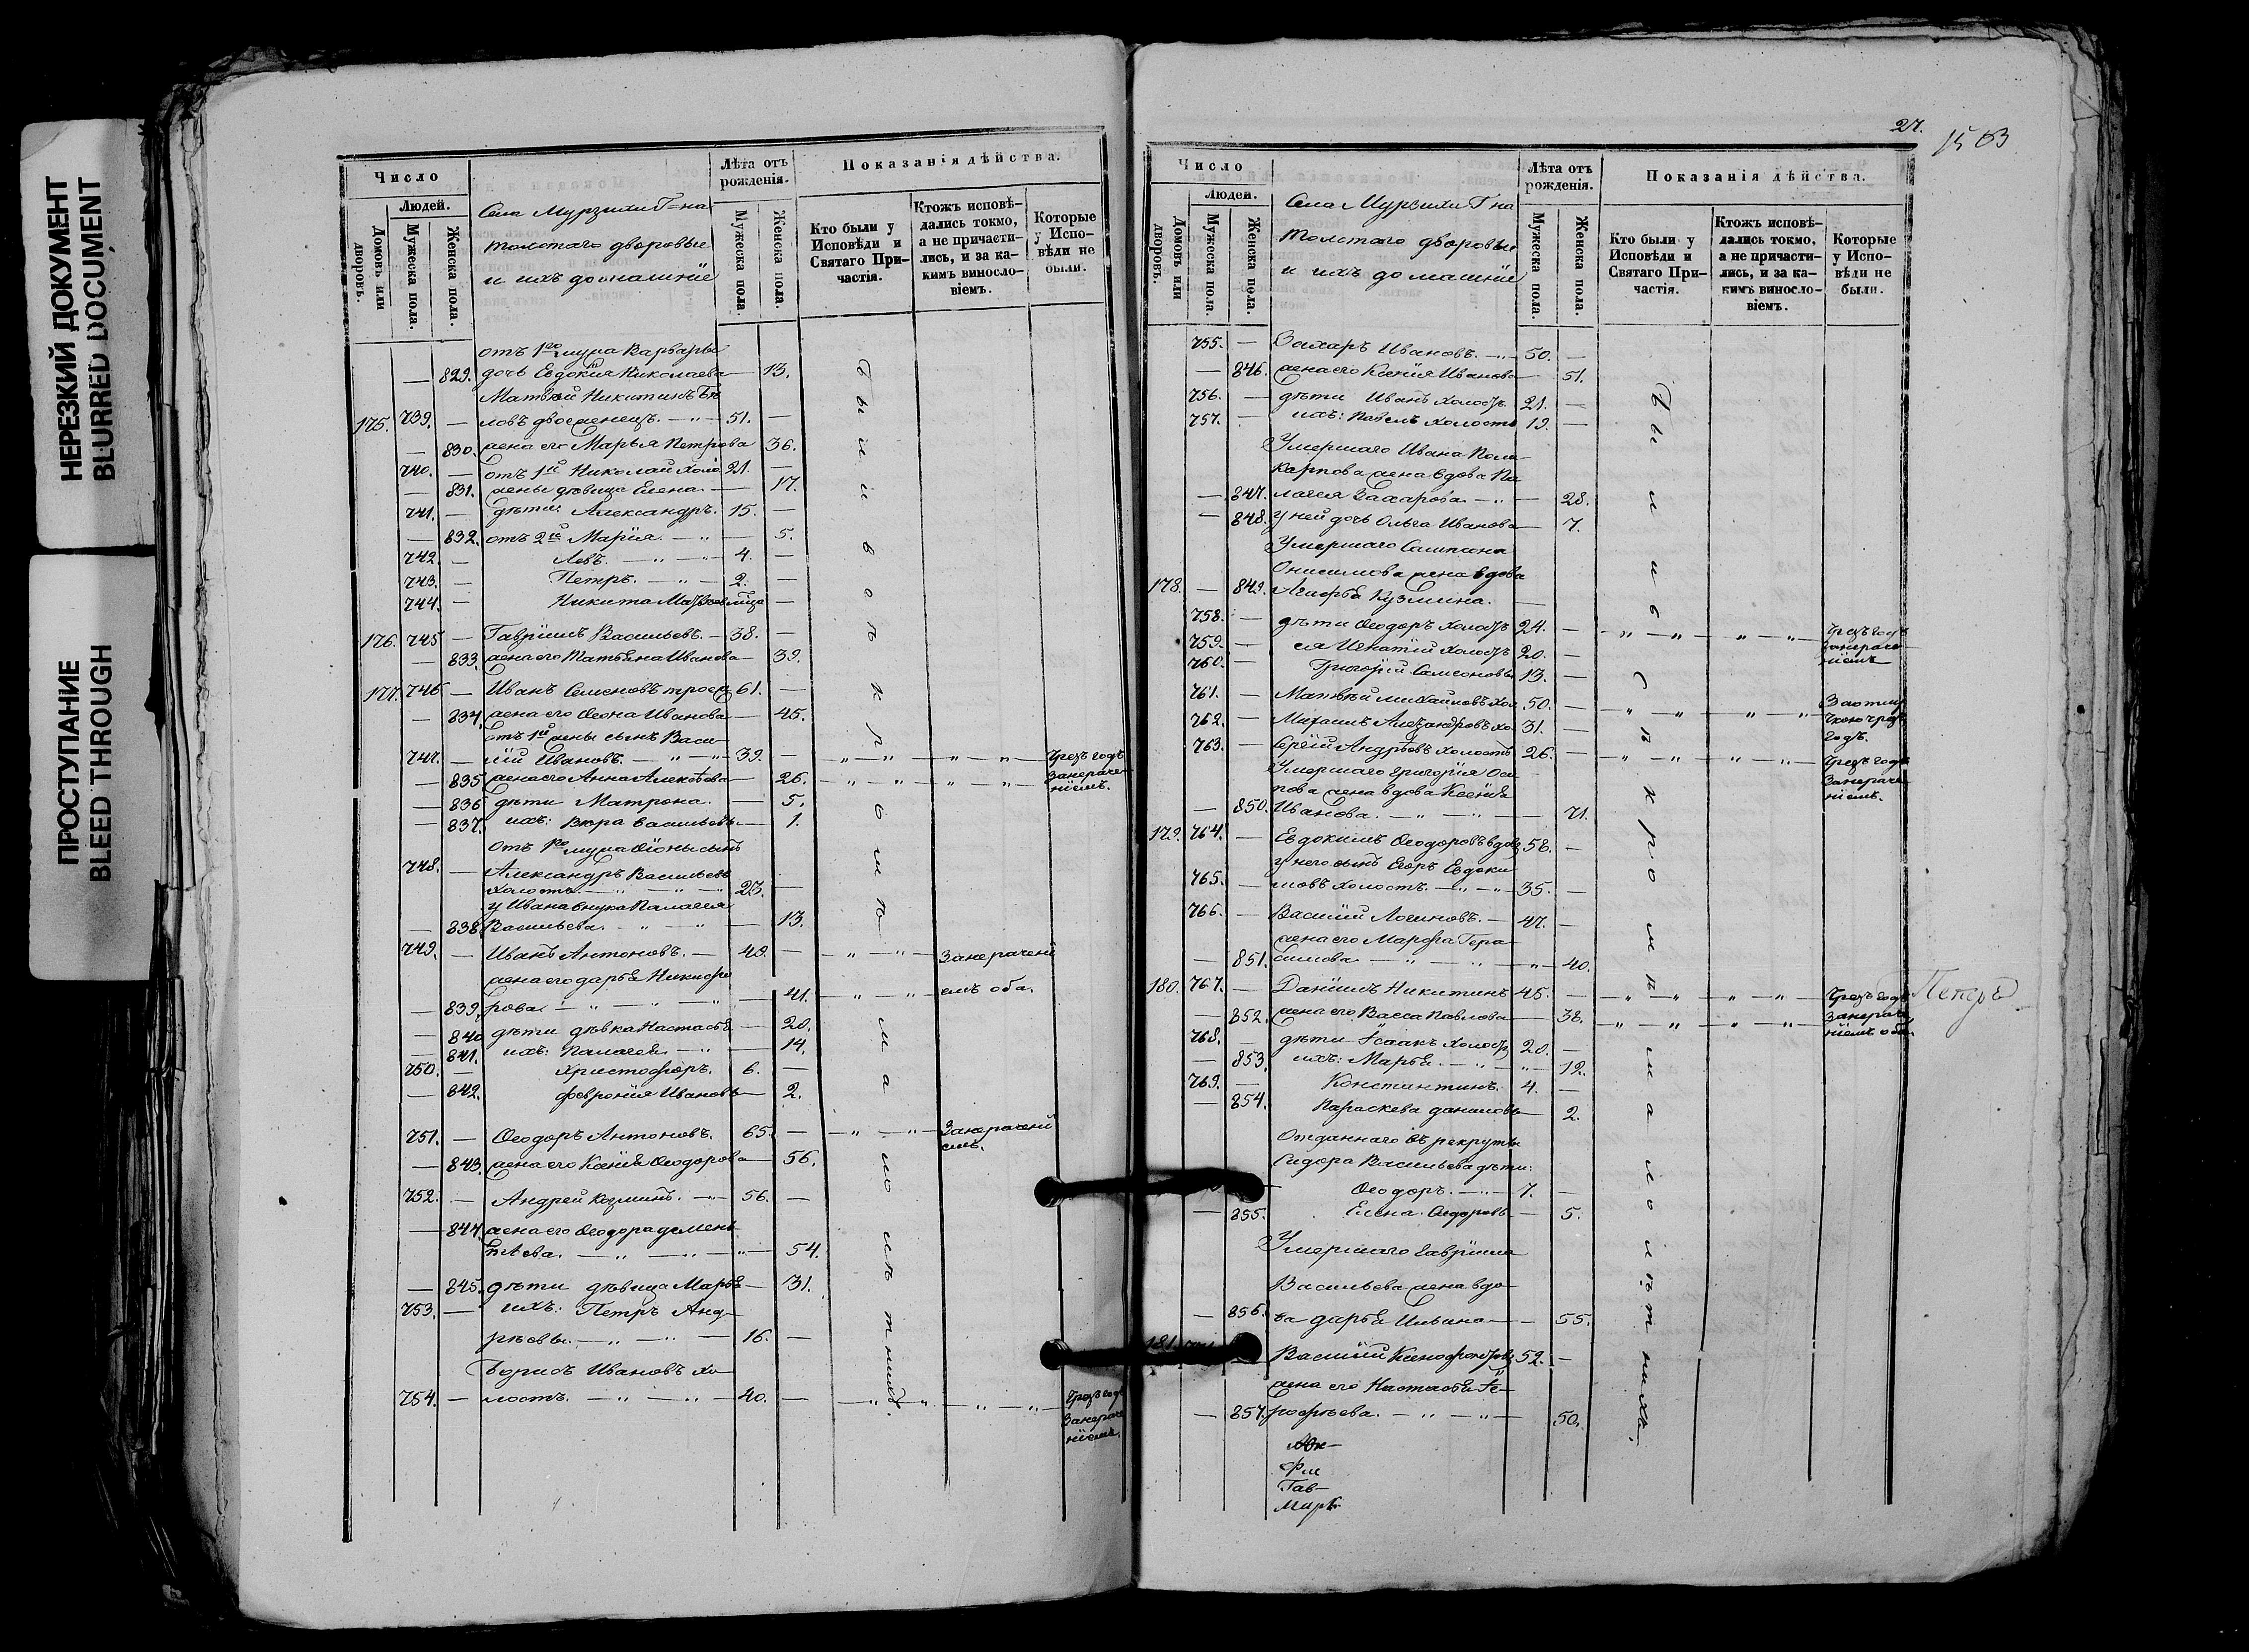 НЕРЕЗКИЙ ДОКУМЕНТ
BLURRED DOCUMENT
ПРОСТУПАНИЕ
BLEED THROUGH
Число
Людей.
Домовъ или дворовъ.
Мужеска пола.
Женска пола.
Села Мурзихи Г=на
толстаго дворовые
и ихъ домашніе
Лѣта отъ рожденія.
Мужеска пола.
Женска пола.
Показанія дѣйства.
Кто были у Исповѣди и Святаго Причастія.
Ктожъ исповѣдались токмо, а не причастились, и за какимъ винословіемъ.
Которые у Исповѣди не были.
отъ 1го мужа Варвары
— 829. дочь Евдокія Николаева — 13.
Матвѣй Никитинъ Бѣ
175. 739. — ловъ двоеженецъ. — „ — 51. —
— 830. жена его Марья Петрова 36.
740. — отъ 1й Николай холо. 21. —
— 831. жены дѣвица Елена. — 17.
741. — дѣти: Александръ. 15. —
— 832. отъ 2й Марія. — „ — 5.
742. — Левъ. — „ — „ — 4. —
743. — Петръ. — „ — 2. —
744. — Никита Матвѣевы —
176. 745 — Гавріилъ Васильевъ. — 38. —
— 833. жена его Татьяна Иванова — 39.
177. 746 — Иванъ Семеновъ троеж 61. —
— 834. жена его Ѳіона Иванова — 45.
отъ 1й жены сынъ Васи-
747. — лій Ивановъ. — „ — „ — 39. — „ — „ — „ — „ — Чрезъ годъ
— 835 жена его Анна Алексѣева — 26. — „ — „ — „ — „ — за нераче-
ніемъ.
— 836 дѣти Матрона. — 5.
— 837. ихъ: Вѣра Васильевы — 1.
отъ 1го мужа Ѳіоны сынъ
748. — Александръ Васильевъ
холостъ. — „ — „ — „ 23. —
у Ивана внука Палагея
— 838 Васильева. „ — „ — 13.
749. — Иванъ Антоновъ. — 40. — „ — „ — За нерачені
жена его дарья Никифо
— 839. рова. — „ — „ — „ — 41. — „ — „ емъ оба.
— 840 дѣти дѣвка Настасья — 20.
— 841. ихъ: Палагея. — „ — 14.
750. — Христофоръ. 6. —
— 842. Февронія Ивановы — 2.
751. — Ѳеодоръ Антоновъ. 65. — „ — „ — За нерачені
емъ.
— 843. жена его Ксенія Ѳеодорова — 56.
752. — Андрей Козминъ. — „ — 56. —
— 844. жена его Ѳеодора демен-
тьева. — „ — „ — „ — 54.
— 845. дѣти дѣвица Марья — 31.
753. — ихъ: Петръ Анд-
рѣевы. — „ — „ — 16. —
Борисъ Ивановъ хо-
754. — лостъ. — „ — „ — 40. — „ — „ — „ — „ — Чрезъ годъ
за нераче
ніемъ.
Были в
по к
кромѣ
малолѣтнихъ.
27.
1503
Число
Людей.
Домовъ или дворовъ.
Мужеска пола.
Женска пола.
Села Мурзихи Г на
толстаго дворовые
и ихъ домашніе
Лѣта отъ рожденія.
Мужеска пола.
Женска пола.
Показанія дѣйства.
Кто были у Исповѣди и Святаго Причастія.
Ктожъ исповѣдались токмо, а не причастились, и за какимъ винословіемъ.
Которые у Исповѣди не были.
755. — Захаръ Ивановъ. — „ — 50. —
— 846. жена его Ксенія Иванова — 51.
756. — дѣти Иванъ холостъ 21. —
757. — ихъ: Павелъ холостъ 19. —
Умершаго Ивана Поли-
карпова жена вдова Па
— 847. лагея Захарова. — „ — 28.
— 848. у ней дочь Ольга Иванова — 7.
Умершаго Сампсона
Онисимова жена вдова
178. — 849. Агафья Кузмина. —
758. — дѣти Ѳеодоръ холостъ 24. — „ — „ — „ — „ — Чрезъ годъ
759. — ея Игнатій холостъ 20. — за нераче
760. — Григорій Самсоновы 13. — ніемъ
761. — Матвѣй Михайловъ хол. 50. — „ — „ — „ — „ За отлу
762. — Михаилъ Александровъ хо. 31. — чкою чрезъ
годъ.
763. — Сергій Андрѣевъ холостъ 26. — „ — „ — „ — „ — Чрезъ годъ
Умершаго Григорія Оси за нераче
пова жена вдова Ксенія ніемъ.
— 850. Иванова. — „ — „ — 71.
179. 764. — Евдокимъ Ѳеодоровъ вдов. 58. —
у него сынъ Егоръ Евдоки
765. — мовъ холостъ. — „ — „ — 35. —
766. — Василій Логиновъ. — 47. —
жена его Марфа Гера-
— 851. симова — „ — „ — „ — 40.
180. 767. — Даніилъ Никитинъ 45. — „ — „ — „ — „ — Чрезъ годъ Петръ
— 852. жена его Васса Павлова — 38. — „ — „ — „ — „ — за нераче
ніемъ оба.
768. — дѣти Исаакъ холостъ 20. —
— 853. ихъ: Марья. — „ — „ — 12.
769. — Константинъ. 4. —
— 854. Параскева даниловы — 2.
Отданнаго въ рекруты
Сидора Васильева дѣти:
Ѳеодоръ. — „ — 7. —
— 855. Елена Сидоровы — 5.
Умершаго Гавріила
Васильева жена вдо-
— 856. ва дарья Ильина — 55.
181. Василій Ксенофонтовъ 52. —
жена его Настасья Іе-
— 857. рофѣева. — „ — „ — 50.
Фи
Гав-
Были в
с п
кромѣ
малолѣтнихъ.